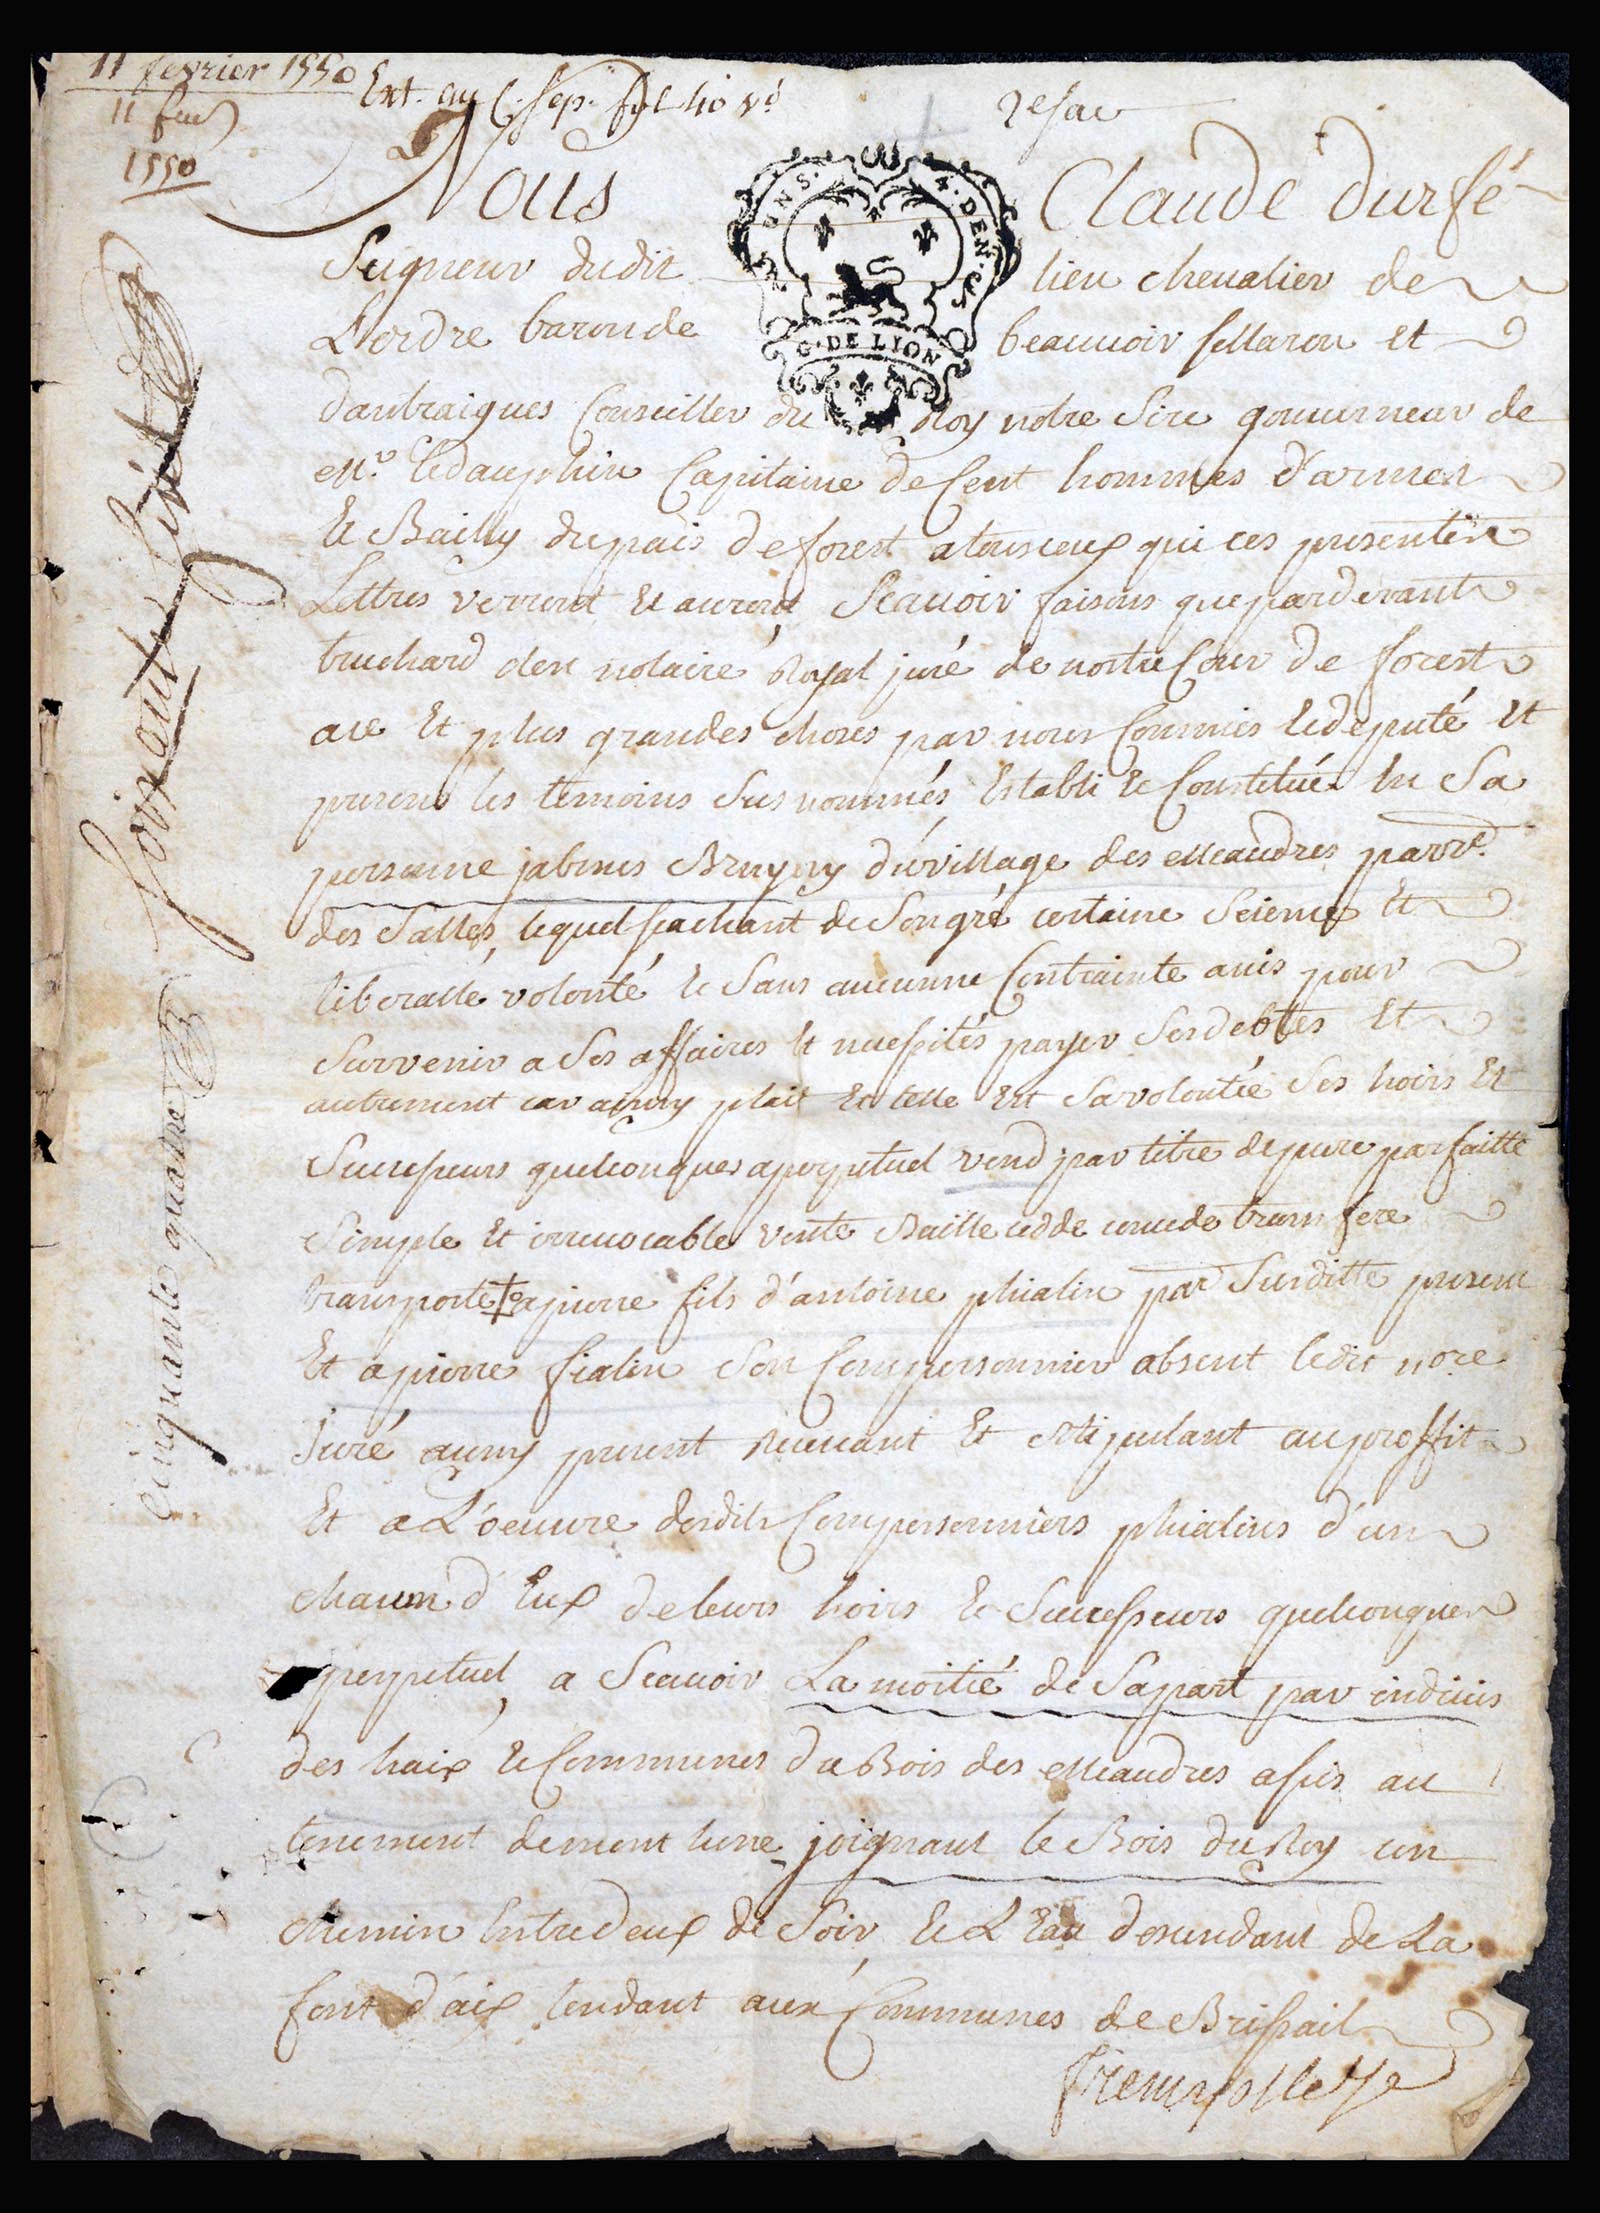 11 fevrier 1550
11 fev
1550
Ext. au
2e sac
Nous Claude durfé
Seigneur dudit lieu chevalier de
L'ordre baron de beauvoir et
dantraigues Conseiller du Roy notre Sire gouverneur de
Mr. ledauphin Capitaine de Cent hommes d'armes
Et Bailly du païs de forest a tous ceux qui ces presentes
Lettres verront Et auront Scavoir faisons que pardevant
truchard notaire Royal juré de nostre Cour de forest
a ce Et plus grandes choses par nous Commis Et deputé Et
presens les temoins Sus nommés, Establi Et Constitué En Sa
personne Bruyery du village des Meaudres parr.
des Salles, lequel sachant de Son gré certaine Science Et
liberalle volonté Et Sans aucunne Contrainte ains pour
Survenir a Ses affaires Et necessités payer Ses debtes Et
autrement car ainsy plait Et telle Est Sa volontée Ses hoirs Et
Successeurs quelconques a perpetuel vend par titre de pure parfaitte
Simple Et irrevocable vente Baille cedde concede transfere
transporte a pierre fils d'antoine phialin par Susditte present
Et a pierre fialin Son Compersonnier absent ledit nore
Juré ainsy present Recevant Et Stipulant au proffit
Et a L'oeuvre desdits Compersonniers phialins d'un
chacun d'Eux de leurs hoirs Et Successeurs quelconques
perpetuel, a Scavoir La moitié de Sa part par indivis
des haix Et Communes du Bois des Meaudres assis au
tenement de mont lune joignant le Bois du Roy un
chemin Entredeux de Soir, Et L'Eau descendant de La
font d'aix tendant aux Communes de Brissail
G. DE LION
4. DEN.
cinquante quatre